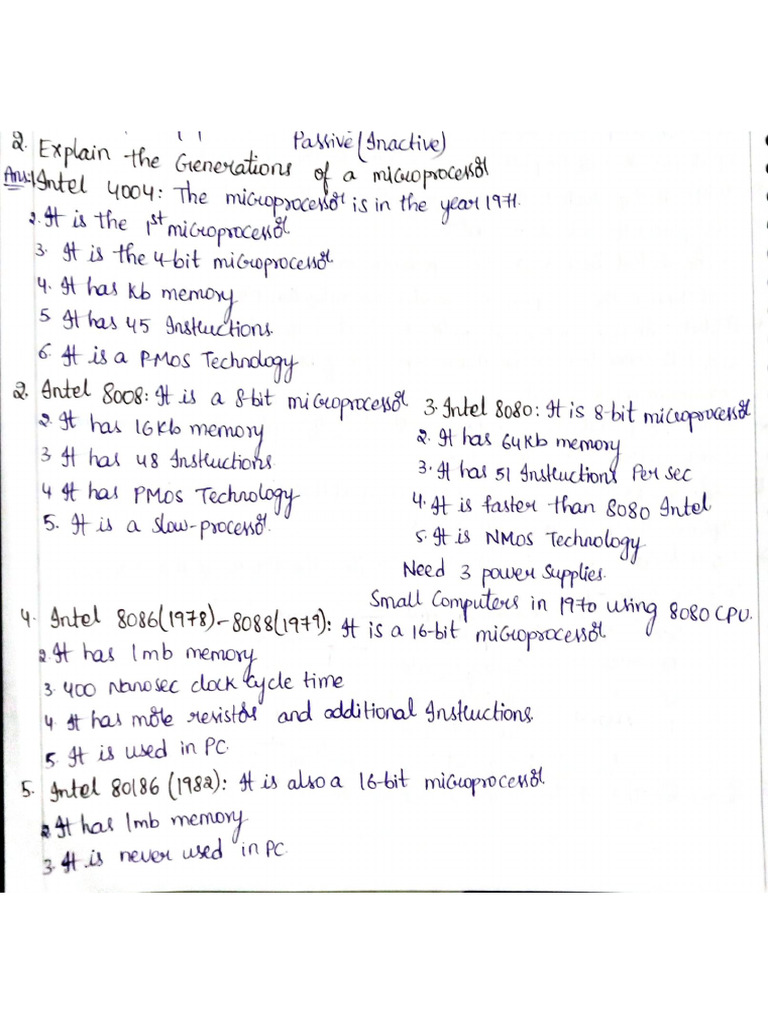 Passive (Inactive)
2. Explain the Generations of a microprocessor
Ans:1 Intel 4004: The microprocessor is in the year 1971.
2. It is the 1st microprocessor
3. It is the 4-bit microprocessor
4. It has kb memory
5 It has 45 Instructions.
6. It is a PMOS Technology
2. Intel 8008: It is a 8-bit microprocessor
2. It has 16Kb memory
3 It has 48 Instructions
4 It has PMOS Technology
5. It is a slow-processor.
3. Intel 8080: It is 8-bit microprocessor
2. It has 64Kb memory
3. It has 51 Instructions Per sec
4. It is faster than 8080 Intel
5. It is NMOS Technology
Need 3 power supplies.
Small Computers in 1970 using 8080 CPU.
4. Intel 8086(1978)-8088(1979): It is a 16-bit microprocessor
2. It has 1mb memory
3. 400 Nanosec clock cycle time
4. It has more resistors and additional Instructions.
5. It is used in PC.
5. Intel 80186 (1982): It is also a 16-bit microprocessor.
2. It has 1mb memory
3. It is never used in PC.